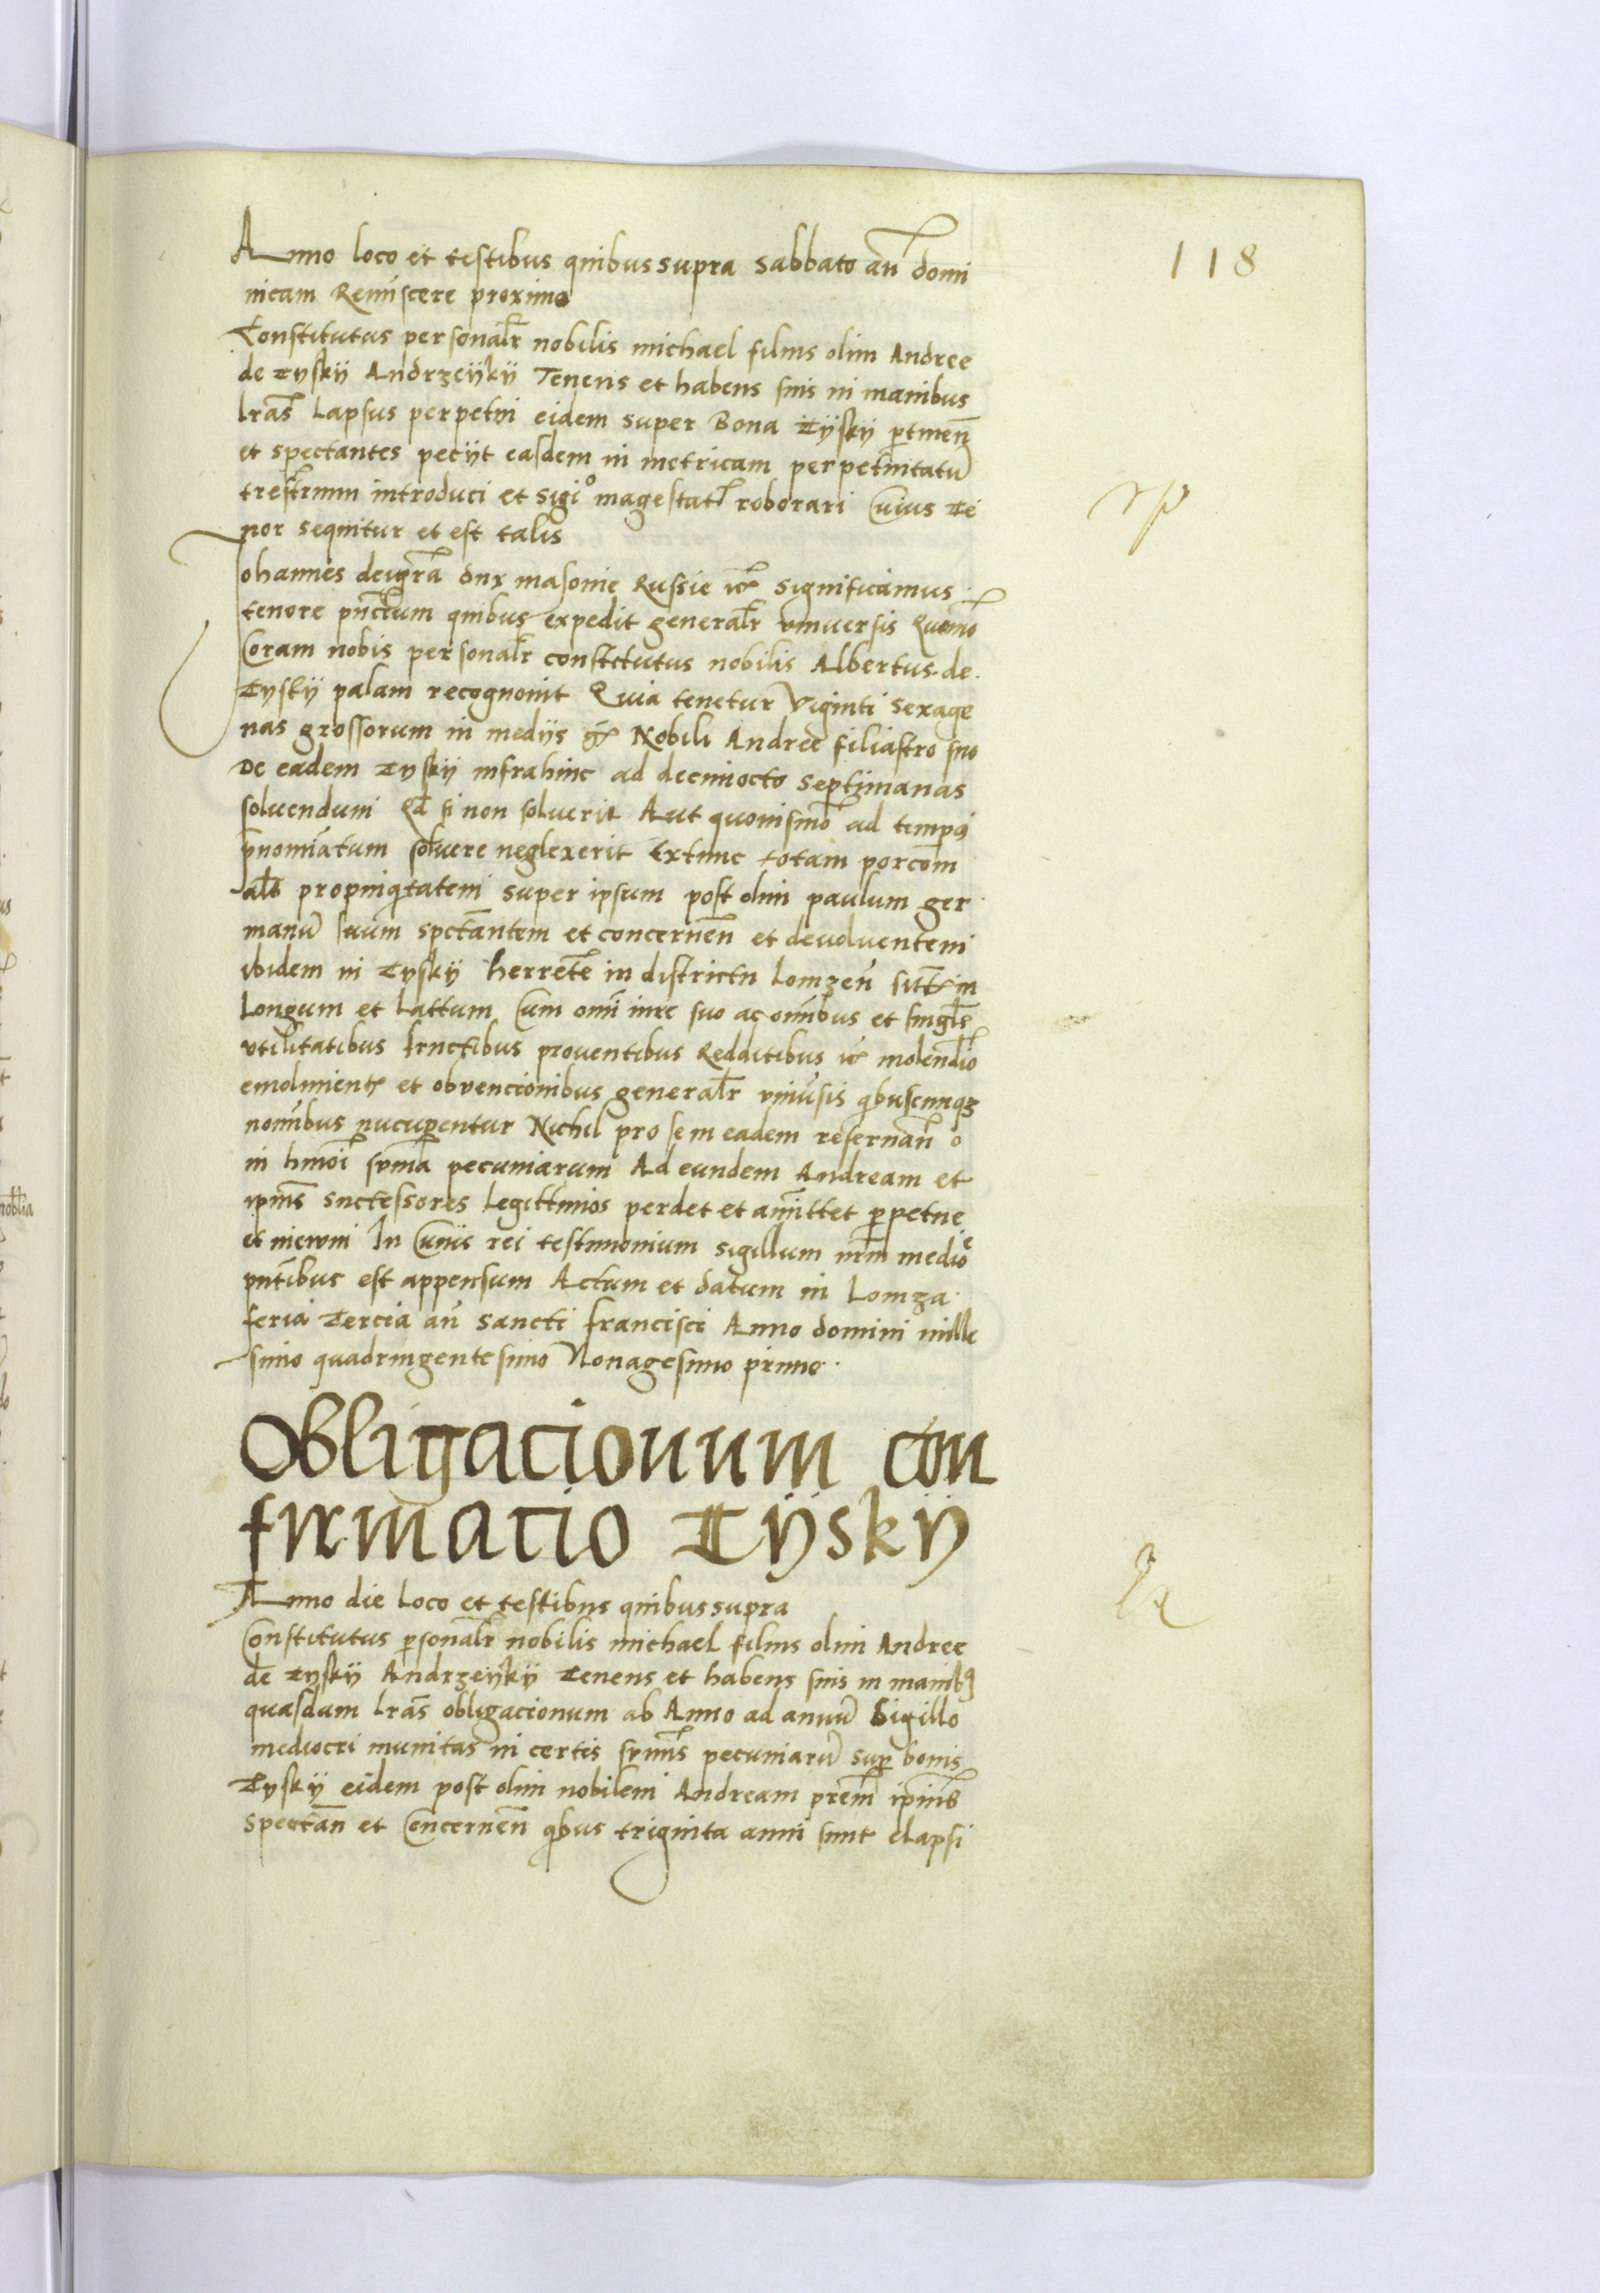 118
Anno loco et testibus quibus supra sabbato añ domi
nicam Reminiscere proximo
Constitutus personalr nobilis michael filius olim Andree
de Tyskij Andrzeijkij Tenens et habens suis in manibus
lras Lapsus perpetui eidem super Bona Tijskij ptinen
et spectantes pecijt easdem in metricam perpetuitatu
trestrium introduci et sigio magestatis roborari Cuius Te
nor sequitur et est talis
Johannes dei gra dux masouie Russie etc significamus
tenore pntium quibus expedit generalr vniuersis Quomo
Coram nobis personalr constitutus nobilis Albertus de
Tyskij palam recognouit Quia tenetur Viginti sexage
nas grossorum in medijs gr Nobili Andree filiastro suo
De eadem Tyskij infra hinc ad decimocto septimanas
soluendum Qd si non soluerit Aut quouismo ad tempus
pnomiatum soluere neglexerit Extunc totam porcom
als propinqtatem super ipsum post olim paulum ger
manu suum spctantem et concernen et deuoluentem
ibidem in Tyskij herrente in districtu Lomzen sitt in
Longum et Lattum Cum omi iure suo ac omibus et singlis
vtilitatibus fructibus prouentibus Redditibus etc molendio
emolument et obvencionibus generalr vniusis qbuscunqz
nomibus nucupentur Nichil pro se in eadem reseruan
in hmoi suma pecuniarum Ad eundem Andream et
ipius successores legittimos perdet et amittet ppetue
et in ewm In Cuius rei testimonium sigillum nrm medioe
pntibus est appensum Actum et datum in Lomza
feria Tercia añ sancti francisci Anno domini mille
simo quadringentesimo Nonagesimo primo
Obligacionum con
firmacio Tijskij
Anno die loco et testibus quibus supra
Constitutus psonalr nobilis michael filius olim Andree
de Tyskij Andrzeijkij Tenens et habens suis in manibz
quasdam lras obligacionum ab Anno ad annu Sigillo
mediocri munitas in certis sumis pecuniaru sup bonis
Tyskij eidem post olim nobilem Andream prem ipius
spectan et Concernen qbus triginta anni sunt elapsi